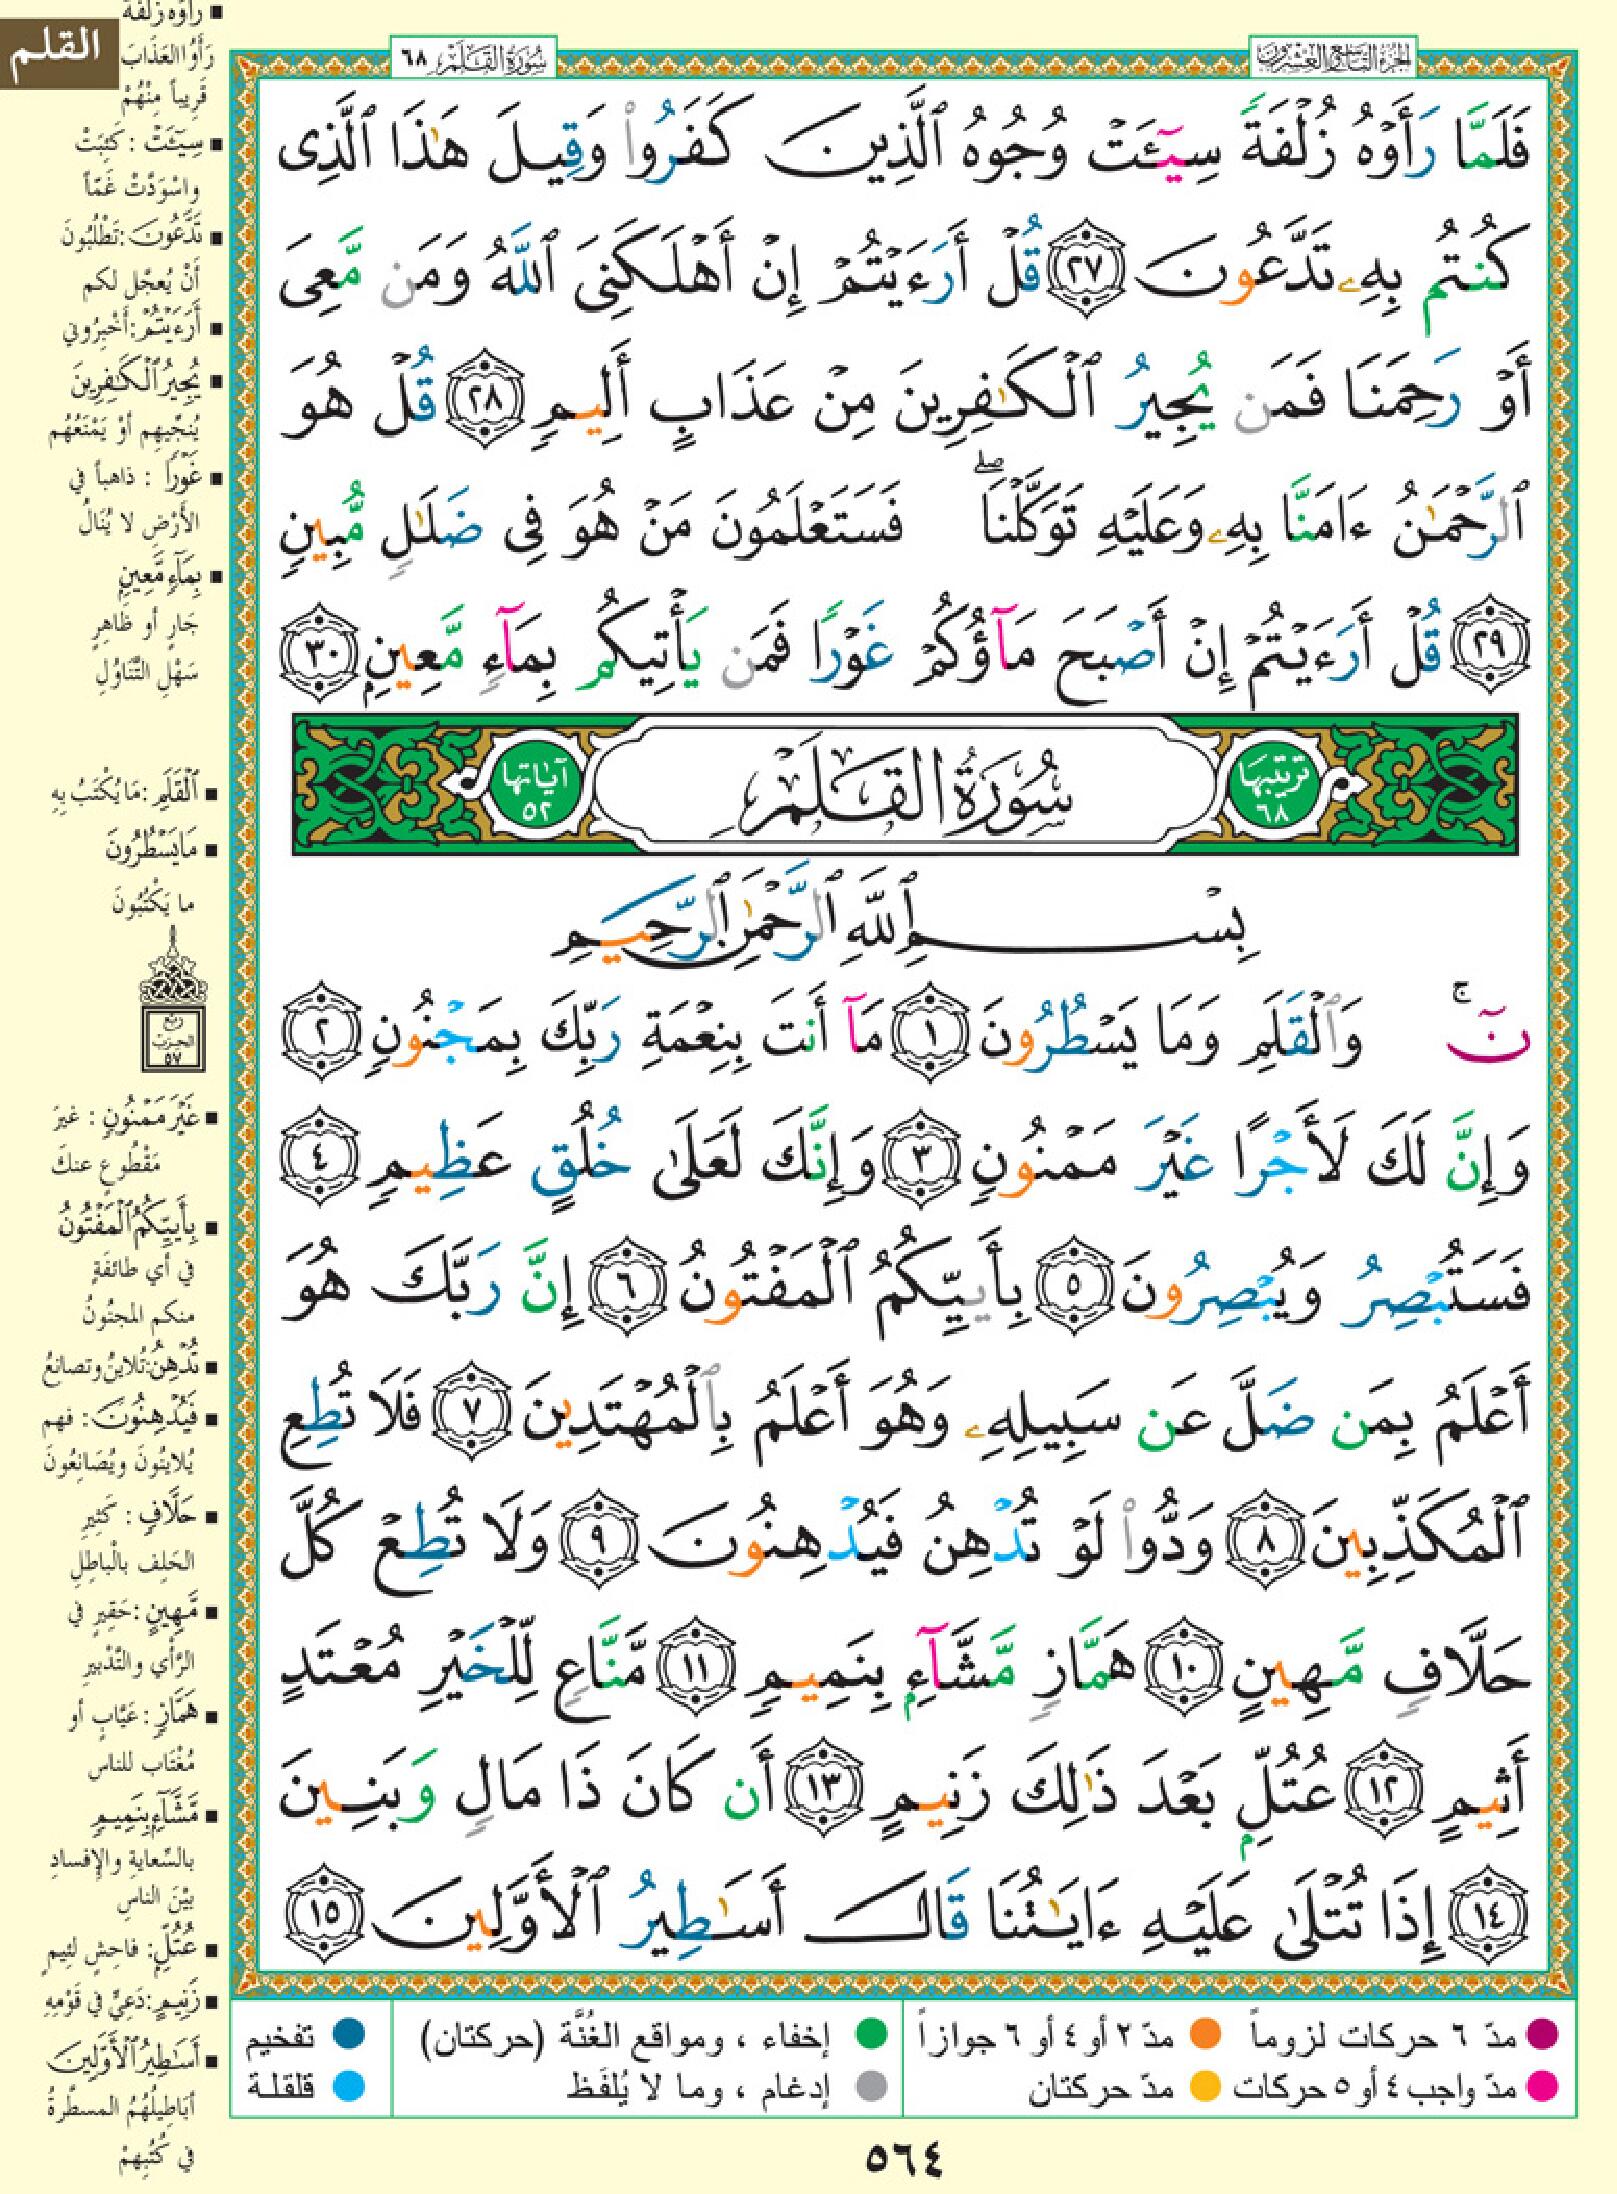 الجزء التاسع والعشرون
سُورَةُ القَلَم ٦٨
القلم
فَلَمَّا رَأَوْهُ زُلْفَةً سِيٓـَٔتْ وُجُوهُ ٱلَّذِينَ كَفَرُوا۟ وَقِيلَ هَٰذَا ٱلَّذِى
كُنتُم بِهِۦ تَدَّعُونَ ٢٧ قُلْ أَرَءَيْتُمْ إِنْ أَهْلَكَنِىَ ٱللَّهُ وَمَن مَّعِىَ
أَوْ رَحِمَنَا فَمَن يُجِيرُ ٱلْكَٰفِرِينَ مِنْ عَذَابٍ أَلِيمٍ ٢٨ قُلْ هُوَ
ٱلرَّحْمَٰنُ ءَامَنَّا بِهِۦ وَعَلَيْهِ تَوَكَّلْنَا ۖ فَسَتَعْلَمُونَ مَنْ هُوَ فِى ضَلَٰلٍ مُّبِينٍ
٢٩ قُلْ أَرَءَيْتُمْ إِنْ أَصْبَحَ مَآؤُكُمْ غَوْرًا فَمَن يَأْتِيكُم بِمَآءٍ مَّعِينٍۭ ٣٠
ترتيبها ٦٨ سُورَةُ القَلَمِ آياتها ٥٢
بِسْمِ ٱللَّهِ ٱلرَّحْمَٰنِ ٱلرَّحِيمِ
نٓ ۚ وَٱلْقَلَمِ وَمَا يَسْطُرُونَ ١ مَآ أَنتَ بِنِعْمَةِ رَبِّكَ بِمَجْنُونٍ ٢
وَإِنَّ لَكَ لَأَجْرًا غَيْرَ مَمْنُونٍ ٣ وَإِنَّكَ لَعَلَىٰ خُلُقٍ عَظِيمٍ ٤
فَسَتُبْصِرُ وَيُبْصِرُونَ ٥ بِأَييِّكُمُ ٱلْمَفْتُونُ ٦ إِنَّ رَبَّكَ هُوَ
أَعْلَمُ بِمَن ضَلَّ عَن سَبِيلِهِۦ وَهُوَ أَعْلَمُ بِٱلْمُهْتَدِينَ ٧ فَلَا تُطِعِ
ٱلْمُكَذِّبِينَ ٨ وَدُّوا۟ لَوْ تُدْهِنُ فَيُدْهِنُونَ ٩ وَلَا تُطِعْ كُلَّ
حَلَّافٍ مَّهِينٍ ١٠ هَمَّازٍ مَّشَّآءٍۭ بِنَمِيمٍ ١١ مَّنَّاعٍ لِّلْخَيْرِ مُعْتَدٍ
أَثِيمٍ ١٢ عُتُلٍّۭ بَعْدَ ذَٰلِكَ زَنِيمٍ ١٣ أَن كَانَ ذَا مَالٍ وَبَنِينَ
١٤ إِذَا تُتْلَىٰ عَلَيْهِ ءَايَٰتُنَا قَالَ أَسَٰطِيرُ ٱلْأَوَّلِينَ ١٥
رَأَوْهُ زُلْفَةً
رَأَوُا العَذَابَ
قَرِيباً مِنْهُمْ
سِيٓـَٔتْ : كَئِبَتْ
واسْوَدَّتْ غَمّاً
تَدَّعُونَ : تَطْلُبُونَ
أَنْ يُعجَّل لكم
أَرَءَيْتُمْ : أَخْبِرُوني
يُجِيرُ ٱلْكَٰفِرِينَ
يُنجِّيهِم أوْ يَمْنَعُهُم
غَوْرًا : ذاهباً في
الأَرْضِ لا يُنَالُ
بِمَآءٍ مَّعِينٍ
جَارٍ أو ظَاهِرٍ
سَهْلِ التَّنَاوُلِ
ٱلْقَلَمِ : مَا يُكْتَبُ بِهِ
مَا يَسْطُرُونَ
ما يَكْتُبُونَ
ربع
الحزب
٥٧
غَيْرَ مَمْنُونٍ : غيرَ
مَقْطُوعٍ عنكَ
بِأَييِّكُمُ ٱلْمَفْتُونُ
في أي طائفَةٍ
منكم المجنُونُ
تُدْهِنُ : تُلايِنُ وتصانعُ
فَيُدْهِنُونَ : فهم
يُلايِنُونَ ويُصَانِعُونَ
حَلَّافٍ : كَثِيرِ
الحَلِف بالْباطِلِ
مَّهِينٍ : حَقِيرٍ في
الرَّأي والتَّدْبِيرِ
هَمَّازٍ : عَيَّابٍ أو
مُغْتَاب للناس
مَّشَّآءٍۭ بِنَمِيمٍ
بالسِّعايةِ والإِفسادِ
بيْنَ الناسِ
عُتُلٍّ : فاحِشٍ لئِيمٍ
زَنِيمٍ : دَعِيٍّ في قَوْمِهِ
أَسَٰطِيرُ ٱلْأَوَّلِينَ
أبَاطِيلُهُمُ المسطَّرةُ
في كُتُبِهِمْ
مدّ ٦ حركات لزوماً مدّ ٢ أو ٤ أو ٦ جوازاً إخفاء ، ومواقع الغُنَّة (حركتان) تفخيم
مدّ واجب ٤ أو ٥ حركات مدّ حركتان إدغام ، وما لا يُلفَظ قلقلة
٥٦٤